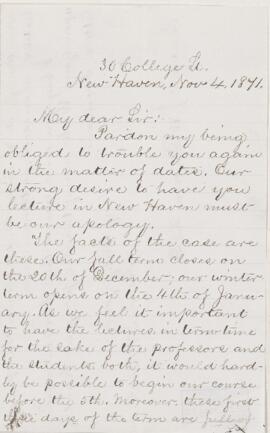 30 College St.
New Haven, Nov 4, 1871.
My dear Sir:
Pardon my being
obliged to trouble you again
in the matter of dates. Our
strong desire to have you
lecture in New Haven must
be our apology.
The facts of the case are
these. Our fall term closes on
the 20th of December; our winter
term opens on the 4th of Janu-
ary. As we feel it important
to have the lectures in term-time
for the sake of the professors and
the students both, it would hard-
ly be possible to begin our course
before the 5th. Moreover, these first
days of the term are full of